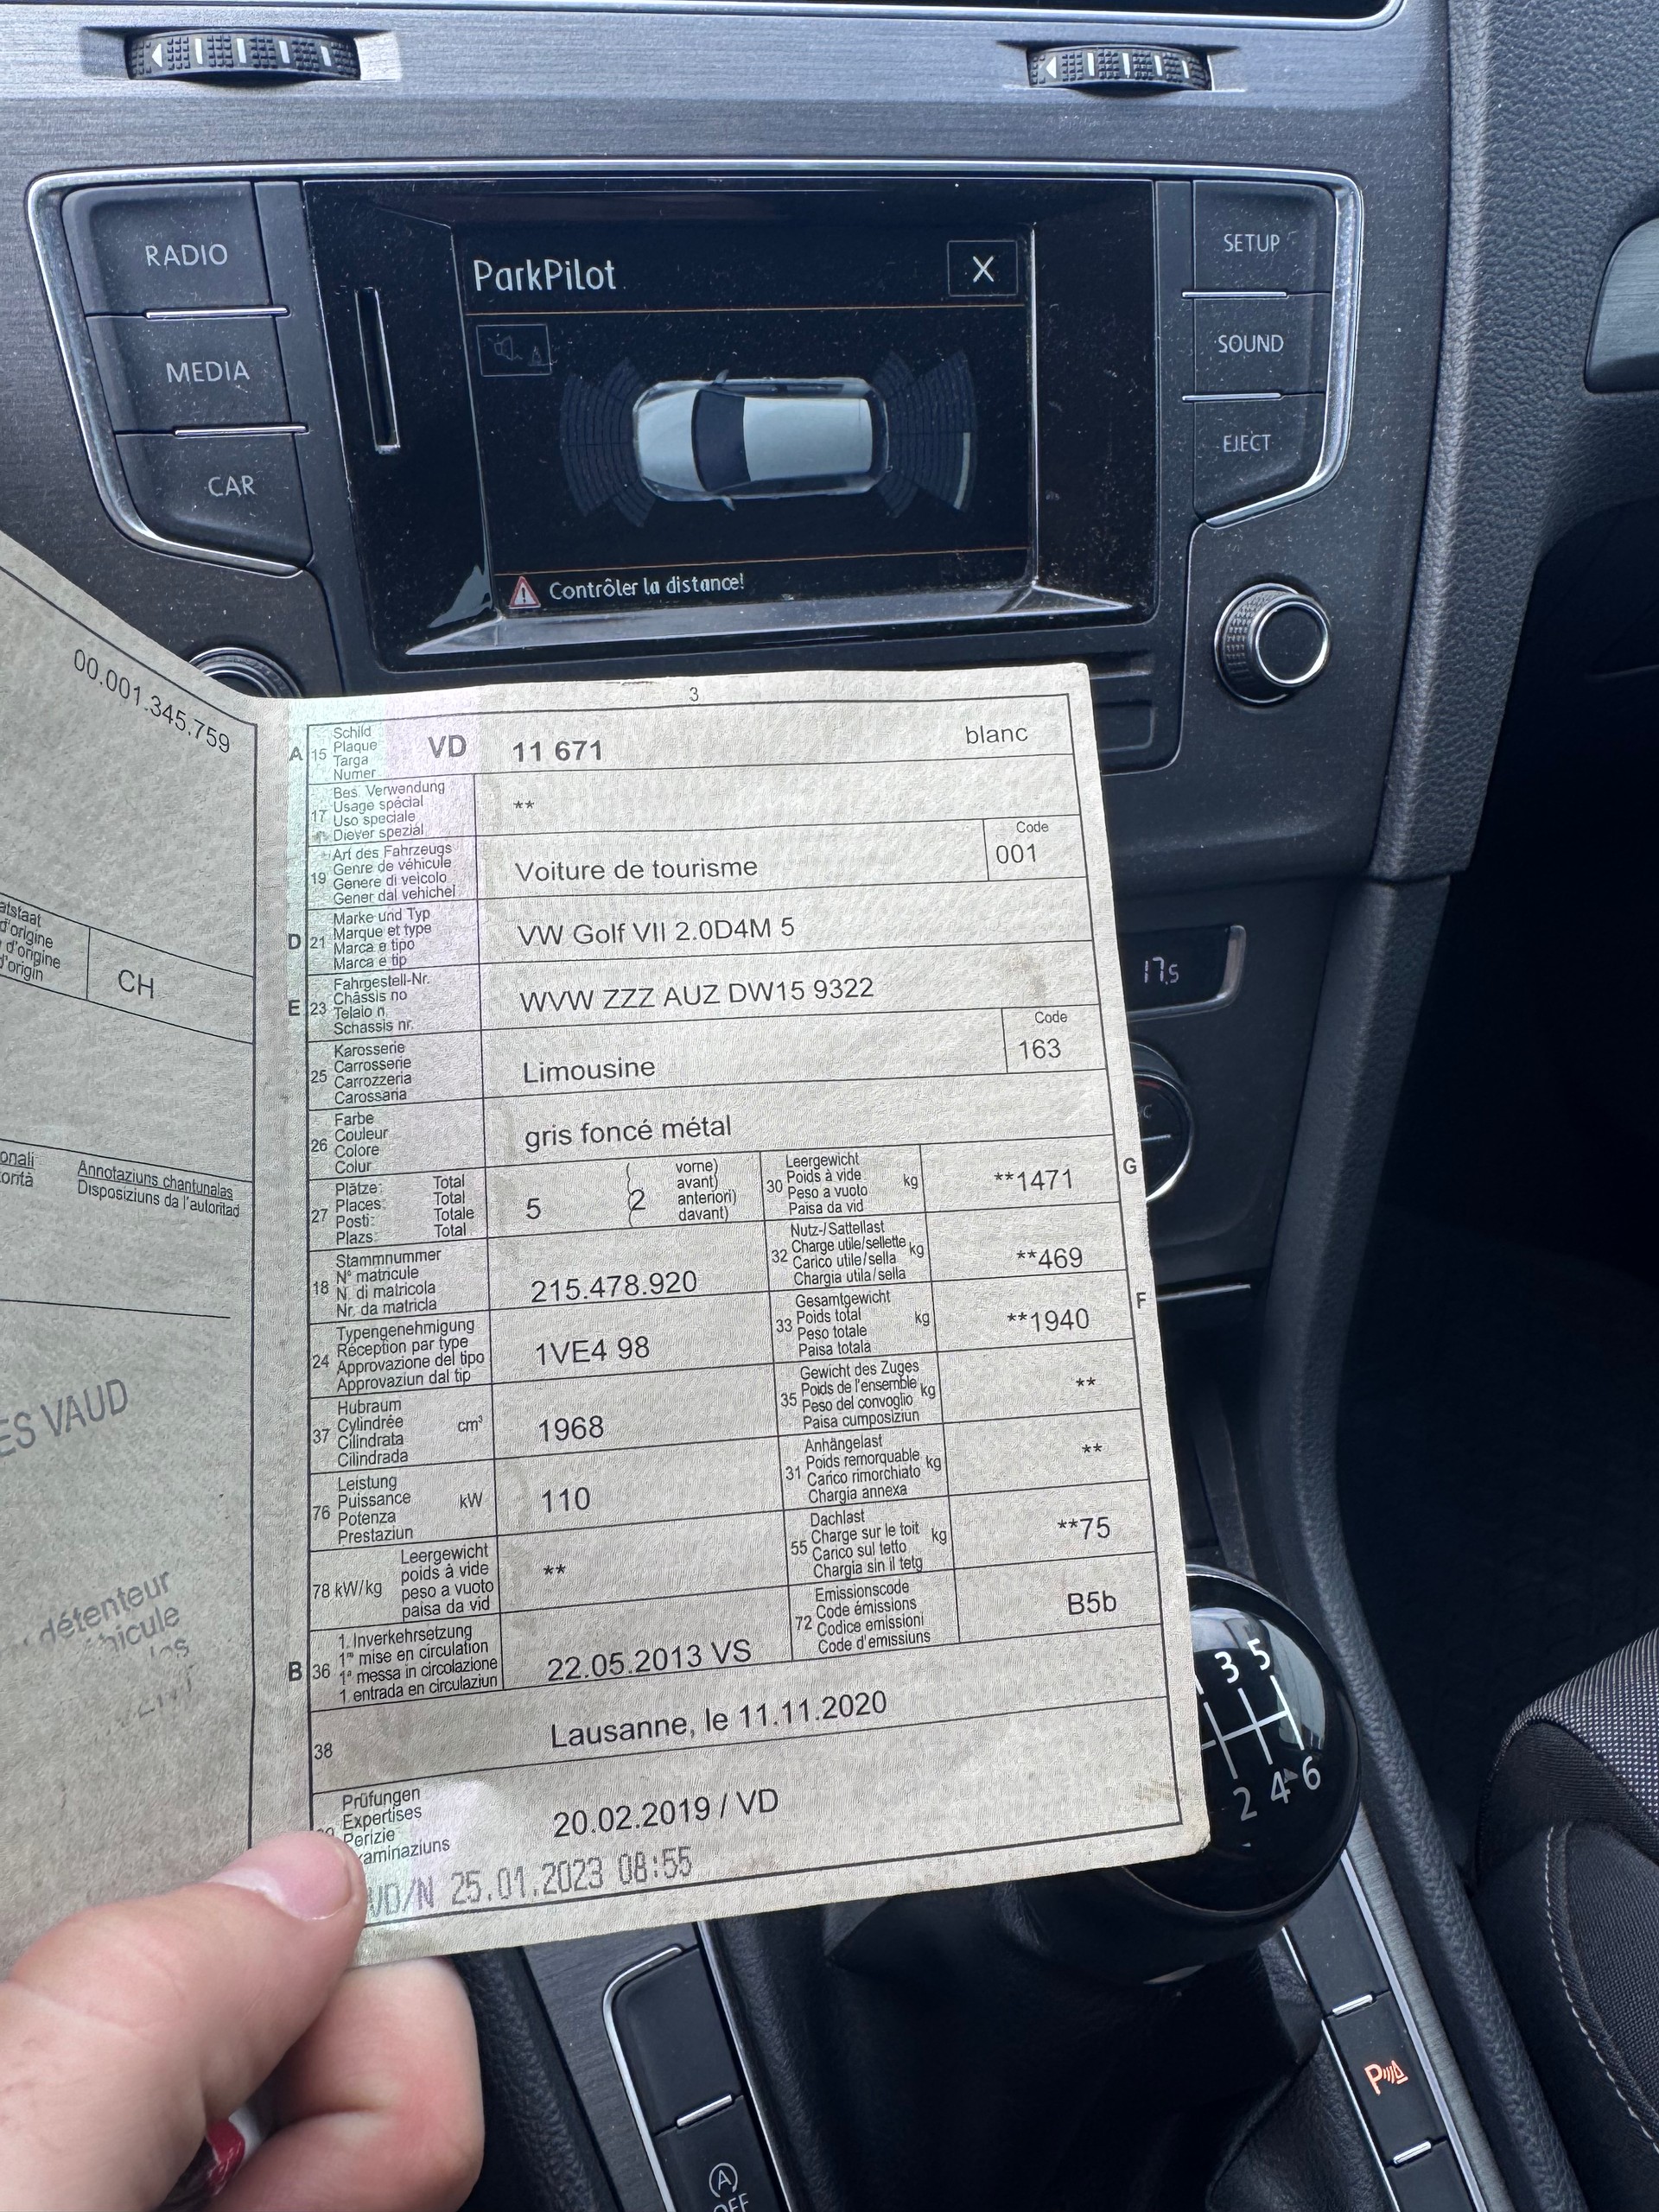 RADIO
MEDIA
CAR
SETUP
SOUND
EJECT
ParkPilot
X
Contrôler la distance!
17.5
00.001.345.759
d'origine
d'origine
d'origin
CH
Annotaziuns chantunalas
Disposiziuns da l'autoritad
ES VAUD
détenteur
3
A 15 Schild
Plaque
Targa
Numer
VD 11 671 blanc
17 Bes. Verwendung
Usage spécial
Uso speciale
Diever spezial
**
19 Art des Fahrzeugs
Genre de véhicule
Genere di veicolo
Gener dal vehichel
Voiture de tourisme
Code
001
D 21 Marke und Typ
Marque et type
Marca e tipo
Marca e tip
VW Golf VII 2.0D4M 5
E 23 Fahrgestell-Nr.
Châssis no
Telaio n.
Schassis nr.
WVW ZZZ AUZ DW15 9322
25 Karosserie
Carrosserie
Carrozzeria
Carossaria
Limousine
Code
163
26 Farbe
Couleur
Colore
Colur
gris foncé métal
27 Plätze: Total
Places: Total
Posti: Totale
Plazs: Total
5 (2 vorne)
avant)
anteriori)
davant)
30 Leergewicht
Poids à vide
Peso a vuoto
Paisa da vid
kg
**1471
G
18 Stammnummer
N° matricule
N. di matricola
Nr. da matricla
215.478.920
32 Nutz-/Sattellast
Charge utile/sellette
Carico utile/sella
Chargia utila/sella
kg
**469
24 Typengenehmigung
Réception par type
Approvazione del tipo
Approvaziun dal tip
1VE4 98
33 Gesamtgewicht
Poids total
Peso totale
Paisa totala
kg
**1940
F
37 Hubraum
Cylindrée
Cilindrata
Cilindrada
cm³
1968
35 Gewicht des Zuges
Poids de l'ensemble
Peso del convoglio
Paisa cumposiziun
kg
**
76 Leistung
Puissance
Potenza
Prestaziun
kW
110
31 Anhängelast
Poids remorquable
Carico rimorchiato
Chargia annexa
kg
**
78 kW/kg Leergewicht
poids à vide
peso a vuoto
paisa da vid
**
55 Dachlast
Charge sur le toit
Carico sul tetto
Chargia sin il tetg
kg
**75
B 36 1. Inverkehrsetzung
1re mise en circulation
1a messa in circolazione
1. entrada en circulaziun
22.05.2013 VS
72 Emissionscode
Code émissions
Codice emissioni
Code d'emissiuns
B5b
38
Lausanne, le 11.11.2020
Prüfungen
Expertises
Perizie
20.02.2019 / VD
VD/N 25.01.2023 08:55
3 5
2 4 6
P
A
OFF